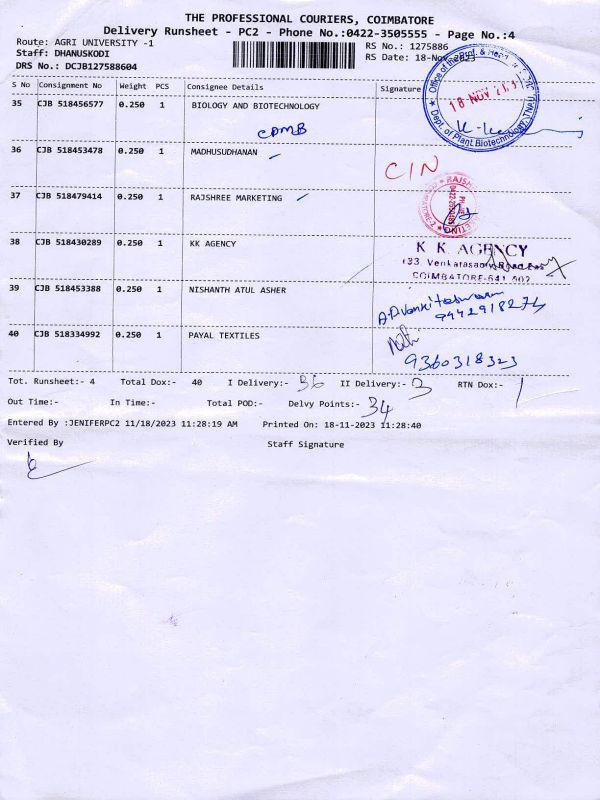 THE PROFESSIONAL COURIERS, COIMBATORE
Delivery Runsheet - PC2 - Phone No.:0422-3505555 - Page No.:4
Route: AGRI UNIVERSITY -1
RS No.: 1275886
Staff: DHANUSKODI
RS Date: 18-Nov-2023
DRS No.: DCJB127588604
S No Consignment No Weight PCS Consignee Details Signature
35 CJB 518456577 0.250 1 BIOLOGY AND BIOTECHNOLOGY
CPMB
Office of the Prof. &
18 NOV
Dept. of Plant Biotechnology, TNAU
36 CJB 518453478 0.250 1 MADHUSUDHANAN
CIN
37 CJB 518479414 0.250 1 RAJSHREE MARKETING
38 CJB 518430289 0.250 1 KK AGENCY
K K AGENCY
133, Venkatasamy Road East
COIMBATORE-641 002
39 CJB 518453388 0.250 1 NISHANTH ATUL ASHER
9442918274
40 CJB 518334992 0.250 1 PAYAL TEXTILES
9360318323
Tot. Runsheet:- 4 Total Dox:- 40 I Delivery:- 36 II Delivery:- 3 RTN Dox:- 1
Out Time:- In Time:- Total POD:- Delvy Points:- 34
Entered By :JENIFERPC2 11/18/2023 11:28:19 AM Printed On: 18-11-2023 11:28:40
Verified By Staff Signature